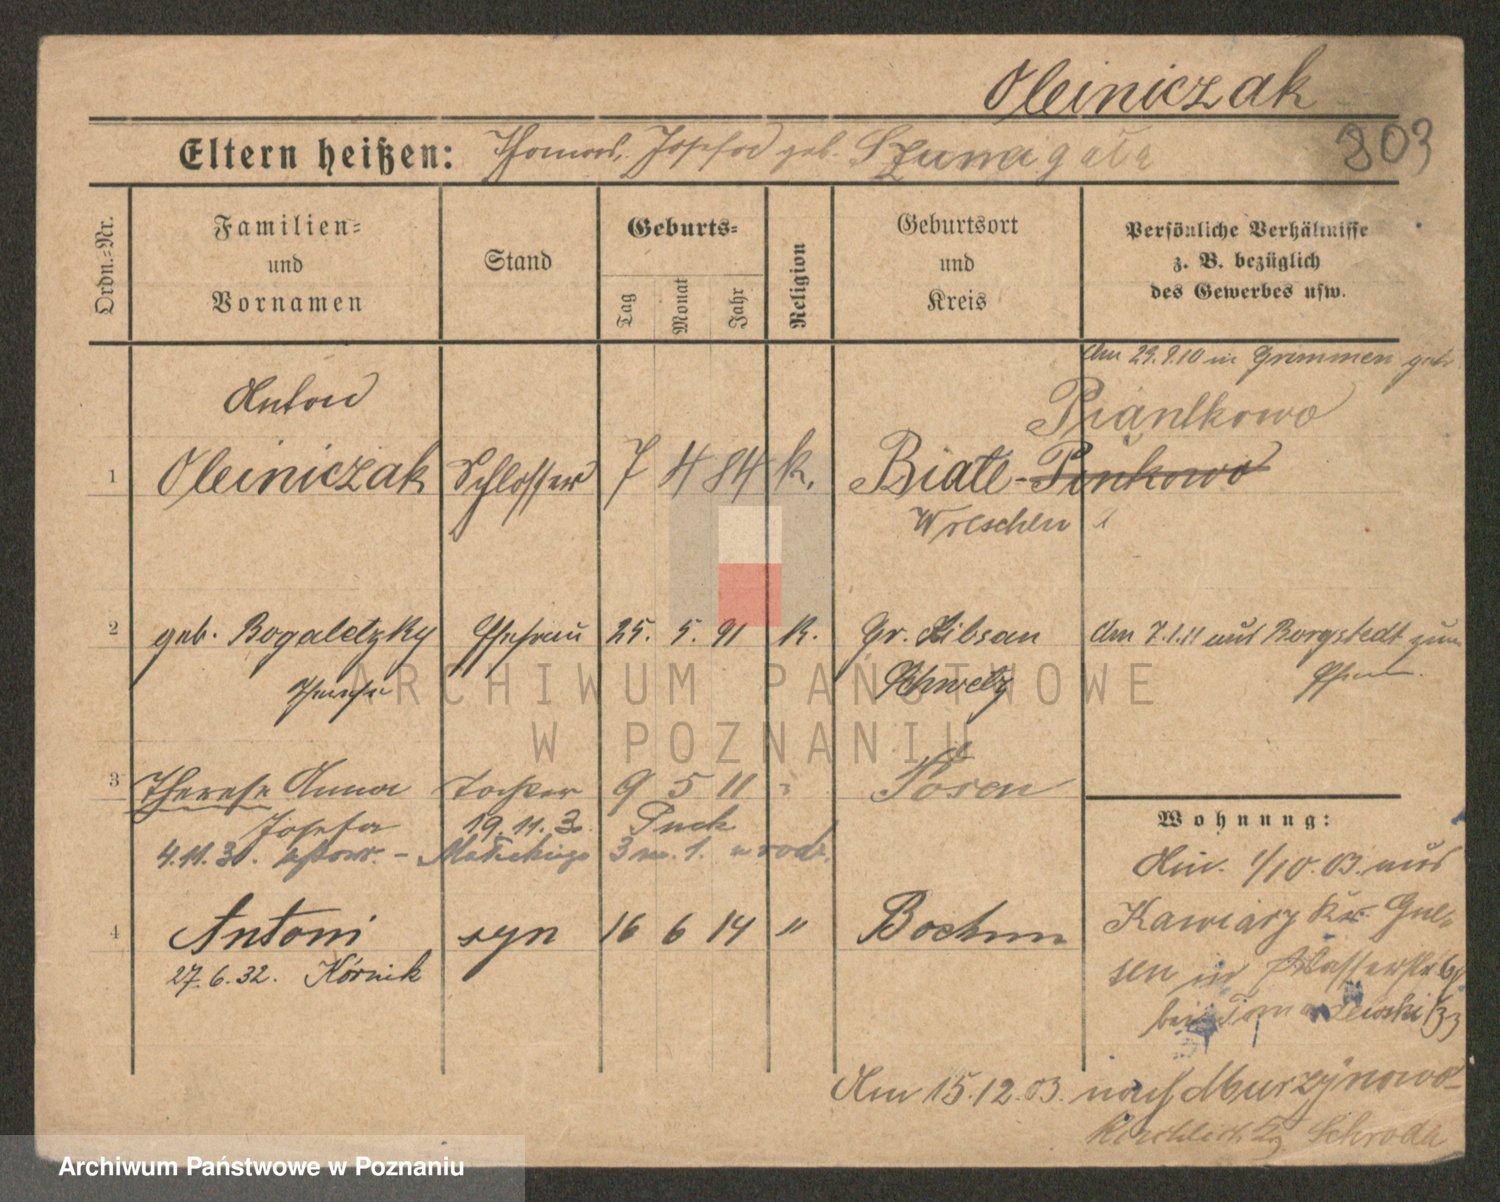 Oleiniczak
Eltern heißen: Thomas, Josefa geb. Szumagala
803
Ordn.=Nr.
Familien=
und
Vornamen
Stand
Geburts=
Tag
Monat
Jahr
Religion
Geburtsort
und
Kreis
Persönliche Verhältnisse
z. B. bezüglich
des Gewerbes usw.
Am 29.9.10 in Grimmen geh.
Anton
Piąntkowo
1 Oleiniczak Schlosser 7 4 84 k. Biale-Penkowo
Wreschen
2 geb. Bogaletzky Ehefrau 25. 5. 91 K. Gr. Sibsau Am 7.1.11 aus Borgstedt zum
Therese Schwetz Ehem.
3 Therese Anna Tochter 9 5 11 " Posen
Josefa 19.11.30. Puck
4.11.30. - 3 m. 1.
Wohnung:
Am. 1/10.03. aus
4 Antoni syn 16 6 14 " Bochum
Kawiary Kr. Gne-
27.6.32. Kórnik
sen in Wasserstr.
bei Tomaszewski
Am 15.12.03. nach Murzynowo
Schroda
ARCHIWUM PAŃSTWOWE
W POZNANIU
Archiwum Państwowe w Poznaniu